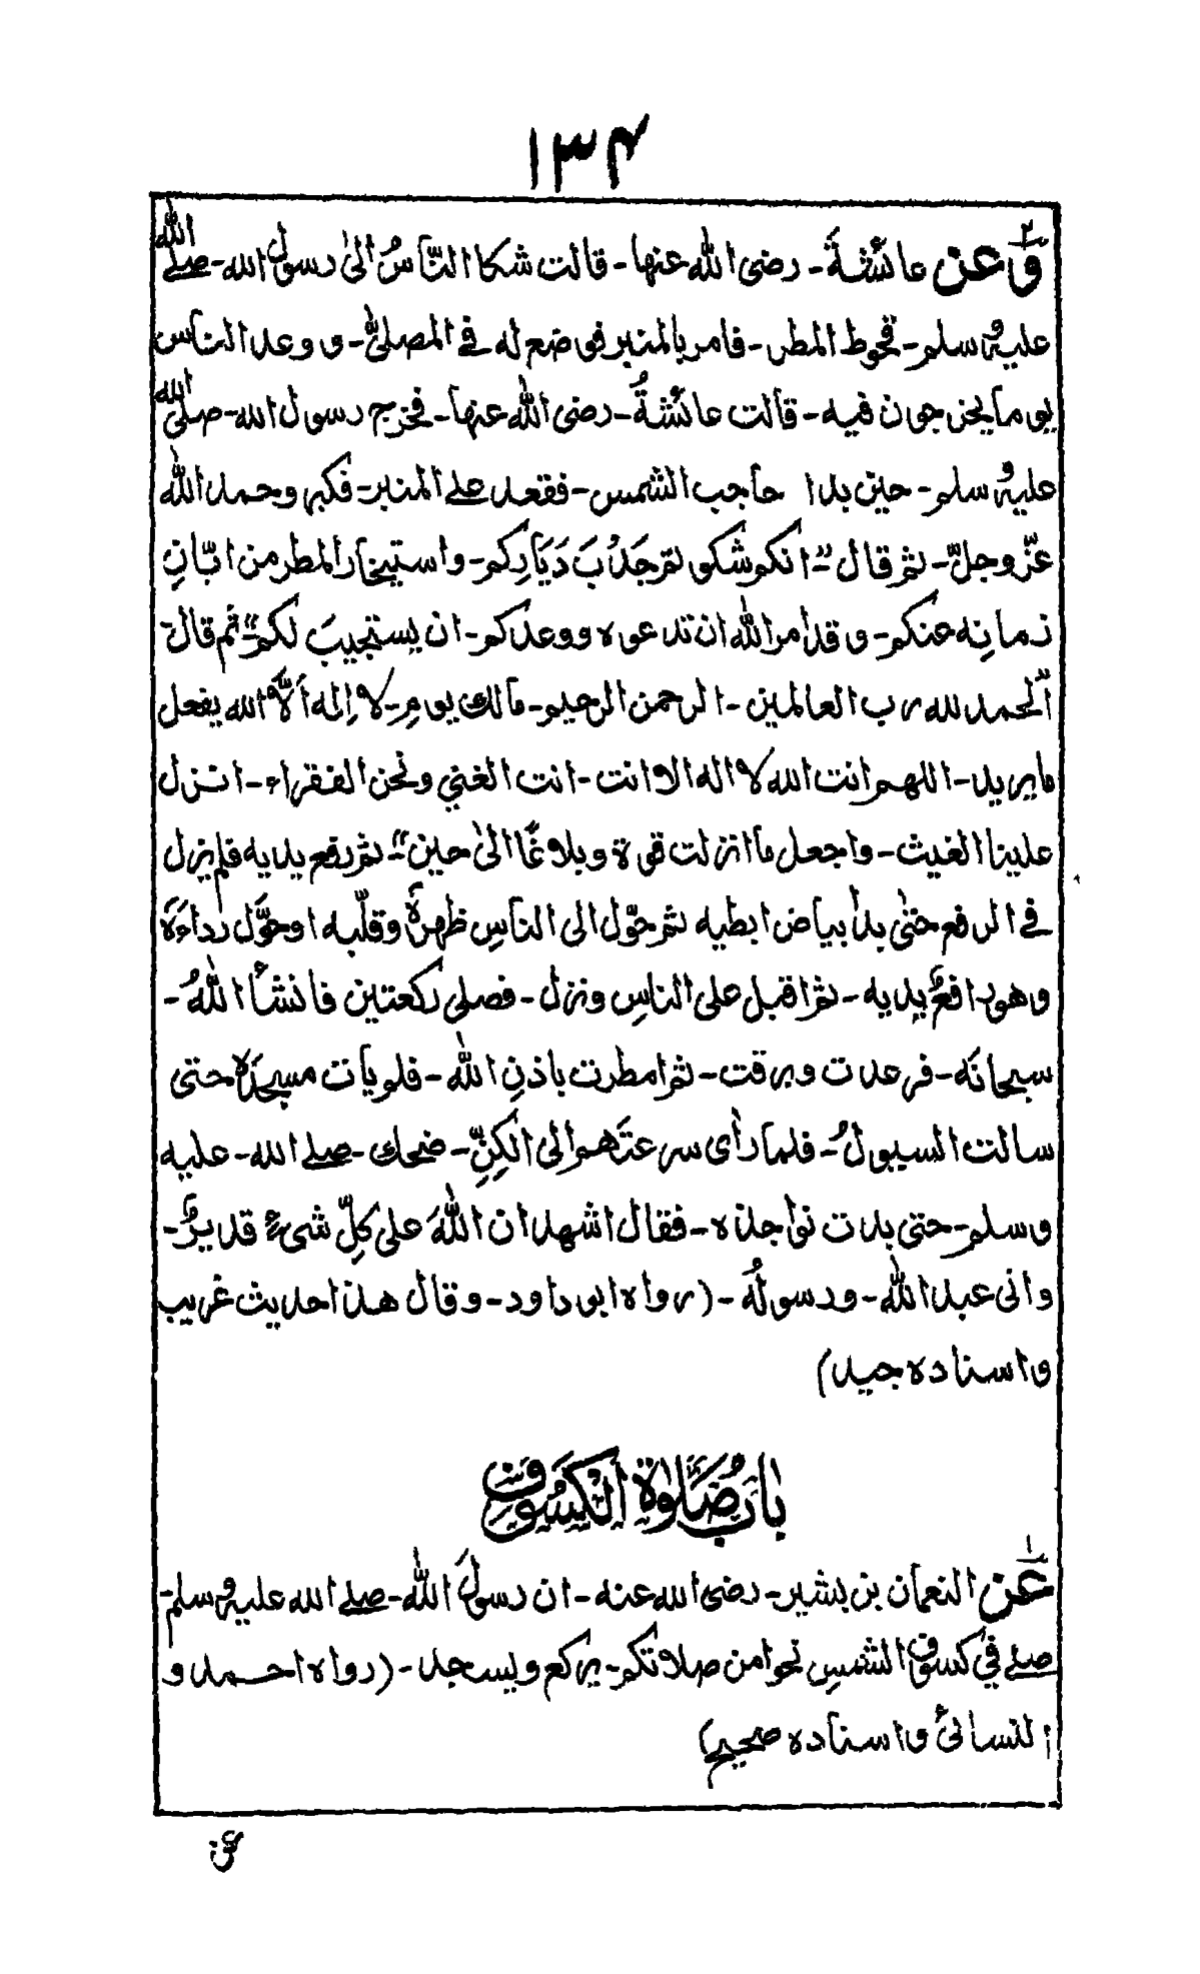 ۱۳۴
۲ وَعن عائشةَ - رضى الله عنها - قالت شكا النّاسُ الىٰ رسولِ الله - صلے الله
عليه وسلم - قحوط المطر - فامر بالمنبر فوضع له فے المصلىٰ - ووعد الناس
يوما يخرجون فيه - قالت عائشةُ - رضى الله عنها - فخرج رسول الله - صلى الله
عليه وسلم - حين بدا حاجب الشمس - فقعد علے المنبر - فكبر وحمد الله
عزّ وجلّ - ثم قال :" انكم شكوتم جَدْبَ دَيَارِكم - واستيخار المطر من ابّانِ
زمانِه عنكم - وقد امر الله ان تدعوه ووعدكم - ان يستجيبَ لكم" - ثم قال -
"اَلحمد لله رب العالمين - الرحمن الرحيم - مالك يومِ - لا اِله اَلّا الله يفعل
ما يريد - اللهم انت الله لا اله الا انت - انت الغني ونحن الفقراء - انزل
علينا الغيث - واجعل ما انزلت قوة وبلاغًا الىٰ حين" - ثم رفع يديه فلم يزل
فے الرفع حتىٰ بدا بياض ابطيه ثم حوّل الى الناسِ ظهرهٗ وقلّبه او حوَّل رداءَه
وهو رافعٌ يديه - ثم اقبل على الناسِ ونزل - فصلى ركعتين فانشأ اللهُ -
سبحانَه - فرعدت وبرقت - ثم امطرت باذنِ الله - فلم يأت مسجدَه حتى
سالت السيولُ - فلما راٰى سرعتَهم الى الكِنِّ - ضحك - صلے الله - عليه
وسلم - حتى بدت نواجذه - فقال اشهد ان اللهَ على كلِّ شىءٍ قديرٌ -
وانى عبد الله - ورسولُه - (رواه ابو داود - وقال هذا حديث غريب
واسناده جيد)
بابُ صَلوٰةِ الْكُسُوْفِ
۱ عَن النعمان بن بشير - رضى الله عنه - ان رسولَ الله - صلے الله عليه وسلم -
صلے فى كسوفِ الشمسِ نحوا من صلاتكم - يركع ويسجد - (رواه احمد و
النسائى واسناده صحيح)